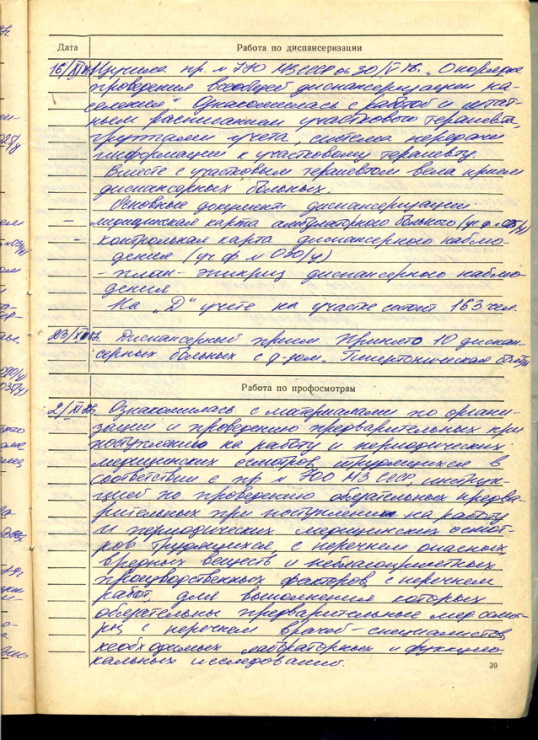 Дата Работа по диспансеризации
16/XI Изучила пр. № 770 МЗ СССР от 30/V „О порядке
проведения всеобщей диспансеризации на-
селения". Ознакомилась с работой и штат-
ным расписанием участкового терапевта,
группами учета, система передачи
информации к участковому терапевту.
Вместе с участковым терапевтом вела прием
диспансерных больных.
Основные документы диспансеризации
– медицинская карта амбулаторного больного (уч. ф. № 025/у)
– контрольная карта диспансерного наблю-
дения (уч. ф. № 030/у)
– план-эпикриз диспансерного наблю-
дения
На „Д" учете на участке состоит 163 чел.
23/XI Диспансерный прием. Принято 10 диспан-
серных больных с д-зом „Гипертоническая болезнь
Работа по профосмотрам
2/XI Ознакомилась с материалами по органи-
зации и проведению предварительных при
поступлении на работу и периодических
медицинских осмотров трудящихся в
соответствии с пр. № 700 МЗ СССР, инструк-
цией по проведению обязательных предва-
рительных при поступлении на работу
и периодических медицинских осмот-
ров трудящихся, с перечнем опасных,
вредных веществ и неблагоприятных
производственных факторов, с перечнем
работ, для выполнения которых
обязательны предварительные мед. осмот-
ры, с перечнем врачей-специалистов,
необходимых лабораторных и функцио-
нальных исследований.
39